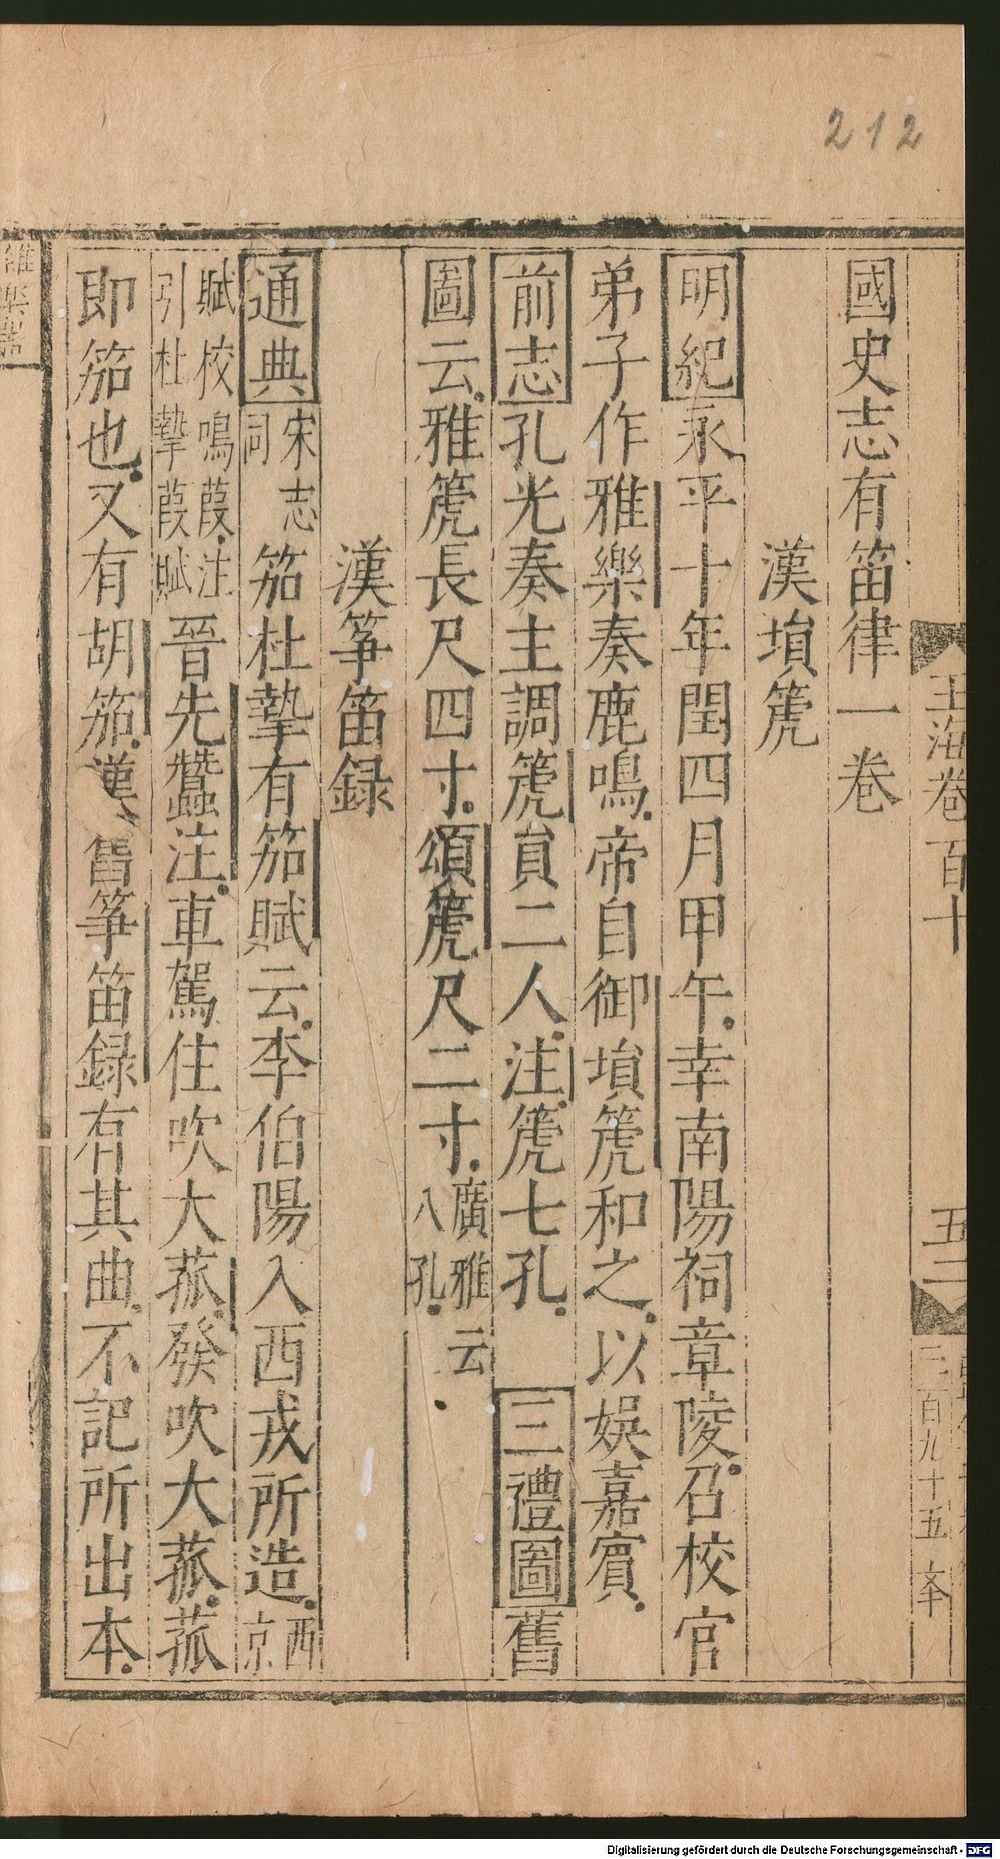 212
玉海卷百十
五二
三百九十五
國史志有笛律一卷
漢塤箎
明紀永平十年閏四月甲午幸南陽祠章陵召校官
弟子作雅樂奏鹿鳴帝自御塤箎和之以娛嘉賓
前志孔光奏主調箎員二人注箎七孔 三禮圖舊
圖云雅箎長尺四寸頌箎尺二寸廣雅云八孔
漢筝笛録
通典宋志同笳杜摯有笳賦云李伯陽入西戎所造西京
賦校鳴葭注引杜摯葭賦晉先蠶注車駕住吹大菰發吹大菰菰
即笳也又有胡笳漢舊筝笛録有其曲不記所出本
雜樂器
Digitalisierung gefördert durch die Deutsche Forschungsgemeinschaft - DFG